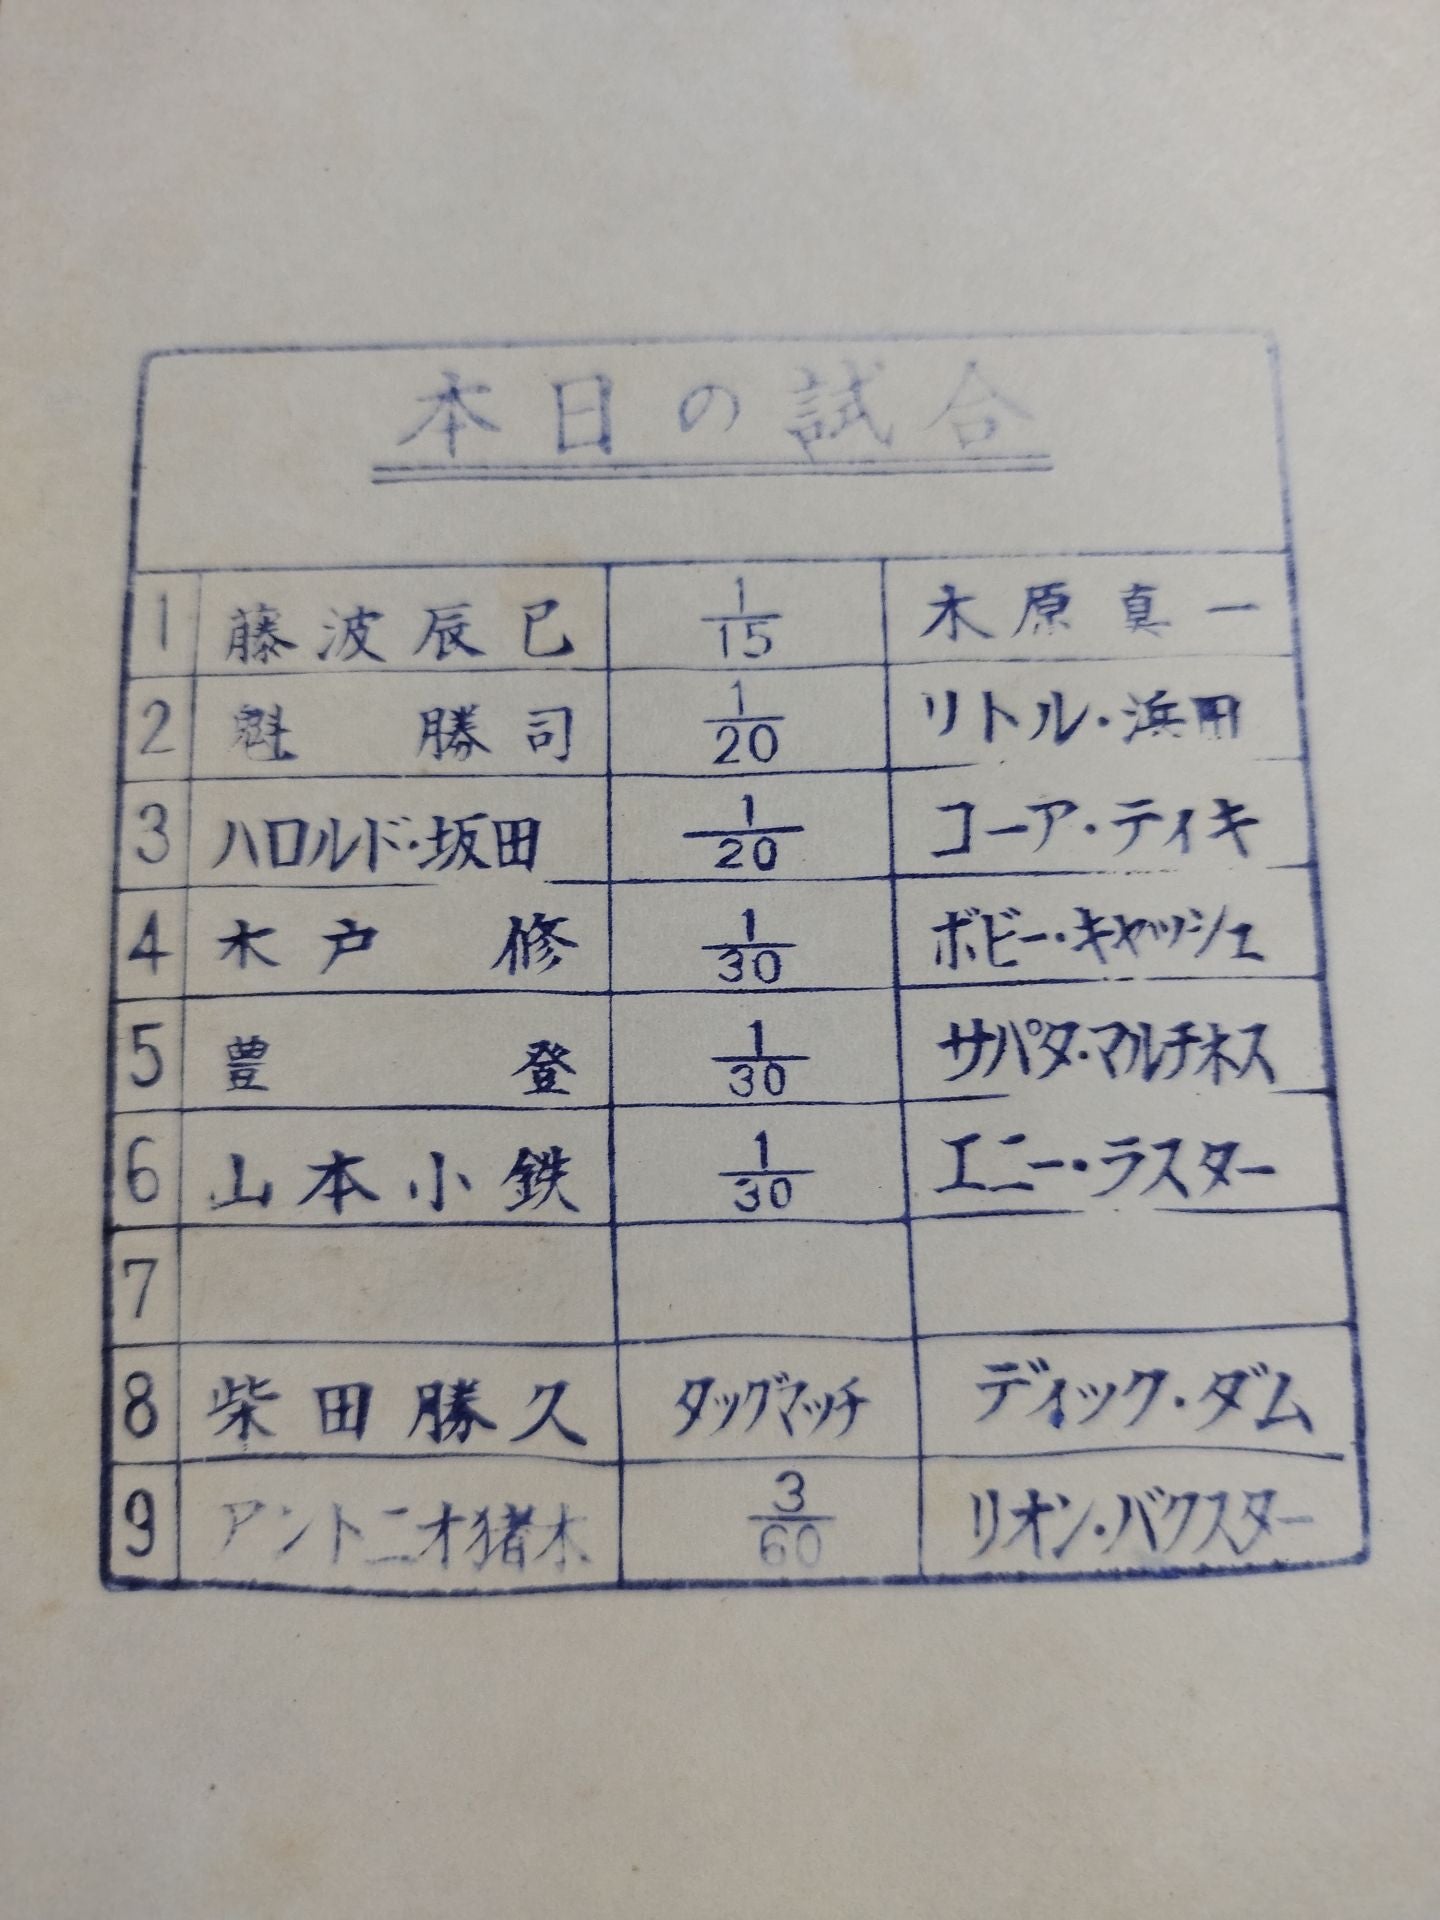 本日の試合
1 藤波辰巳 1/15 木原真一
2 魁 勝司 1/20 リトル・浜田
3 ハロルド・坂田 1/20 コーア・ティキ
4 木戸 修 1/30 ボビー・キャッシュ
5 豊 登 1/30 サパタ・マルチネス
6 山本小鉄 1/30 エニー・ラスター
7
8 柴田勝久 タッグマッチ ディック・ダム
9 アントニオ猪木 3/60 リオン・バクスター